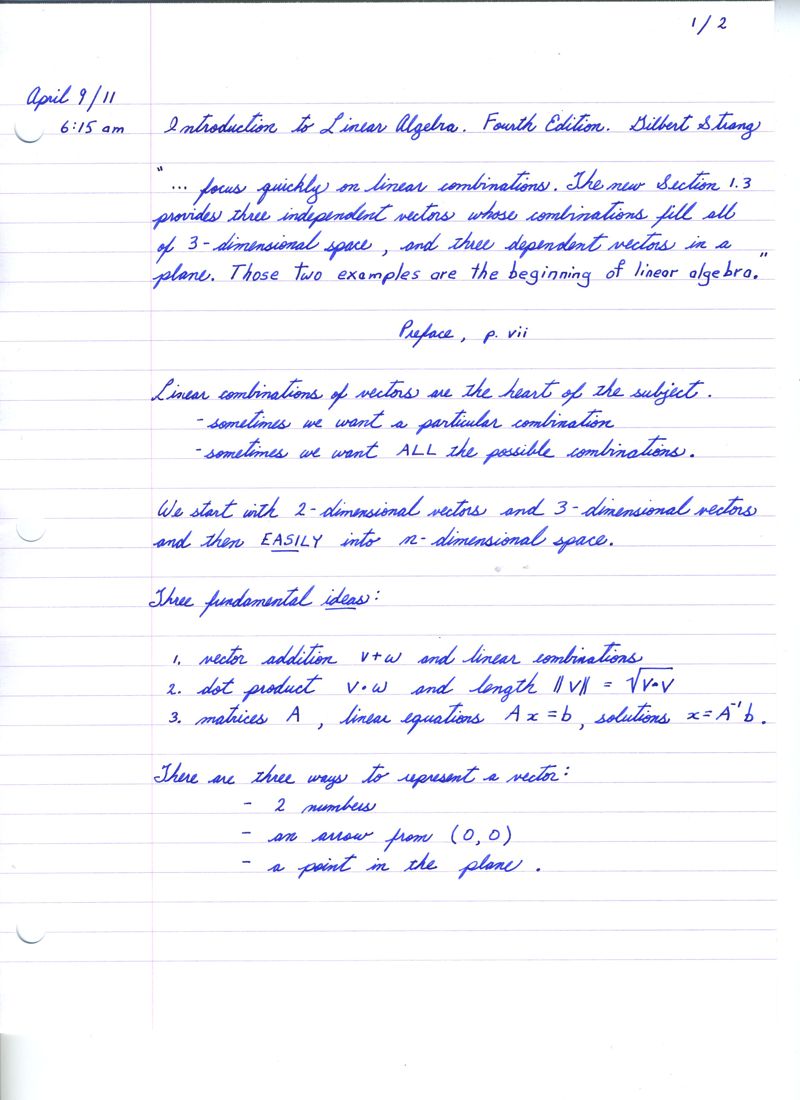 1/2
April 9/11
6:15 am
Introduction to Linear Algebra. Fourth Edition. Gilbert Strang
"... focus quickly on linear combinations. The new Section 1.3
provides three independent vectors whose combinations fill all
of 3-dimensional space, and three dependent vectors in a
plane. Those two examples are the beginning of linear algebra."
Preface, p. vii
Linear combinations of vectors are the heart of the subject.
- sometimes we want a particular combination
- sometimes we want ALL the possible combinations.
We start with 2-dimensional vectors and 3-dimensional vectors
and then EASILY into n-dimensional space.
Three fundamental ideas:
1. vector addition v+w and linear combinations
2. dot product v•w and length ||v|| = √v•v
3. matrices A, linear equations Ax=b, solutions x=A⁻¹b.
There are three ways to represent a vector:
- 2 numbers
- an arrow from (0,0)
- a point in the plane.